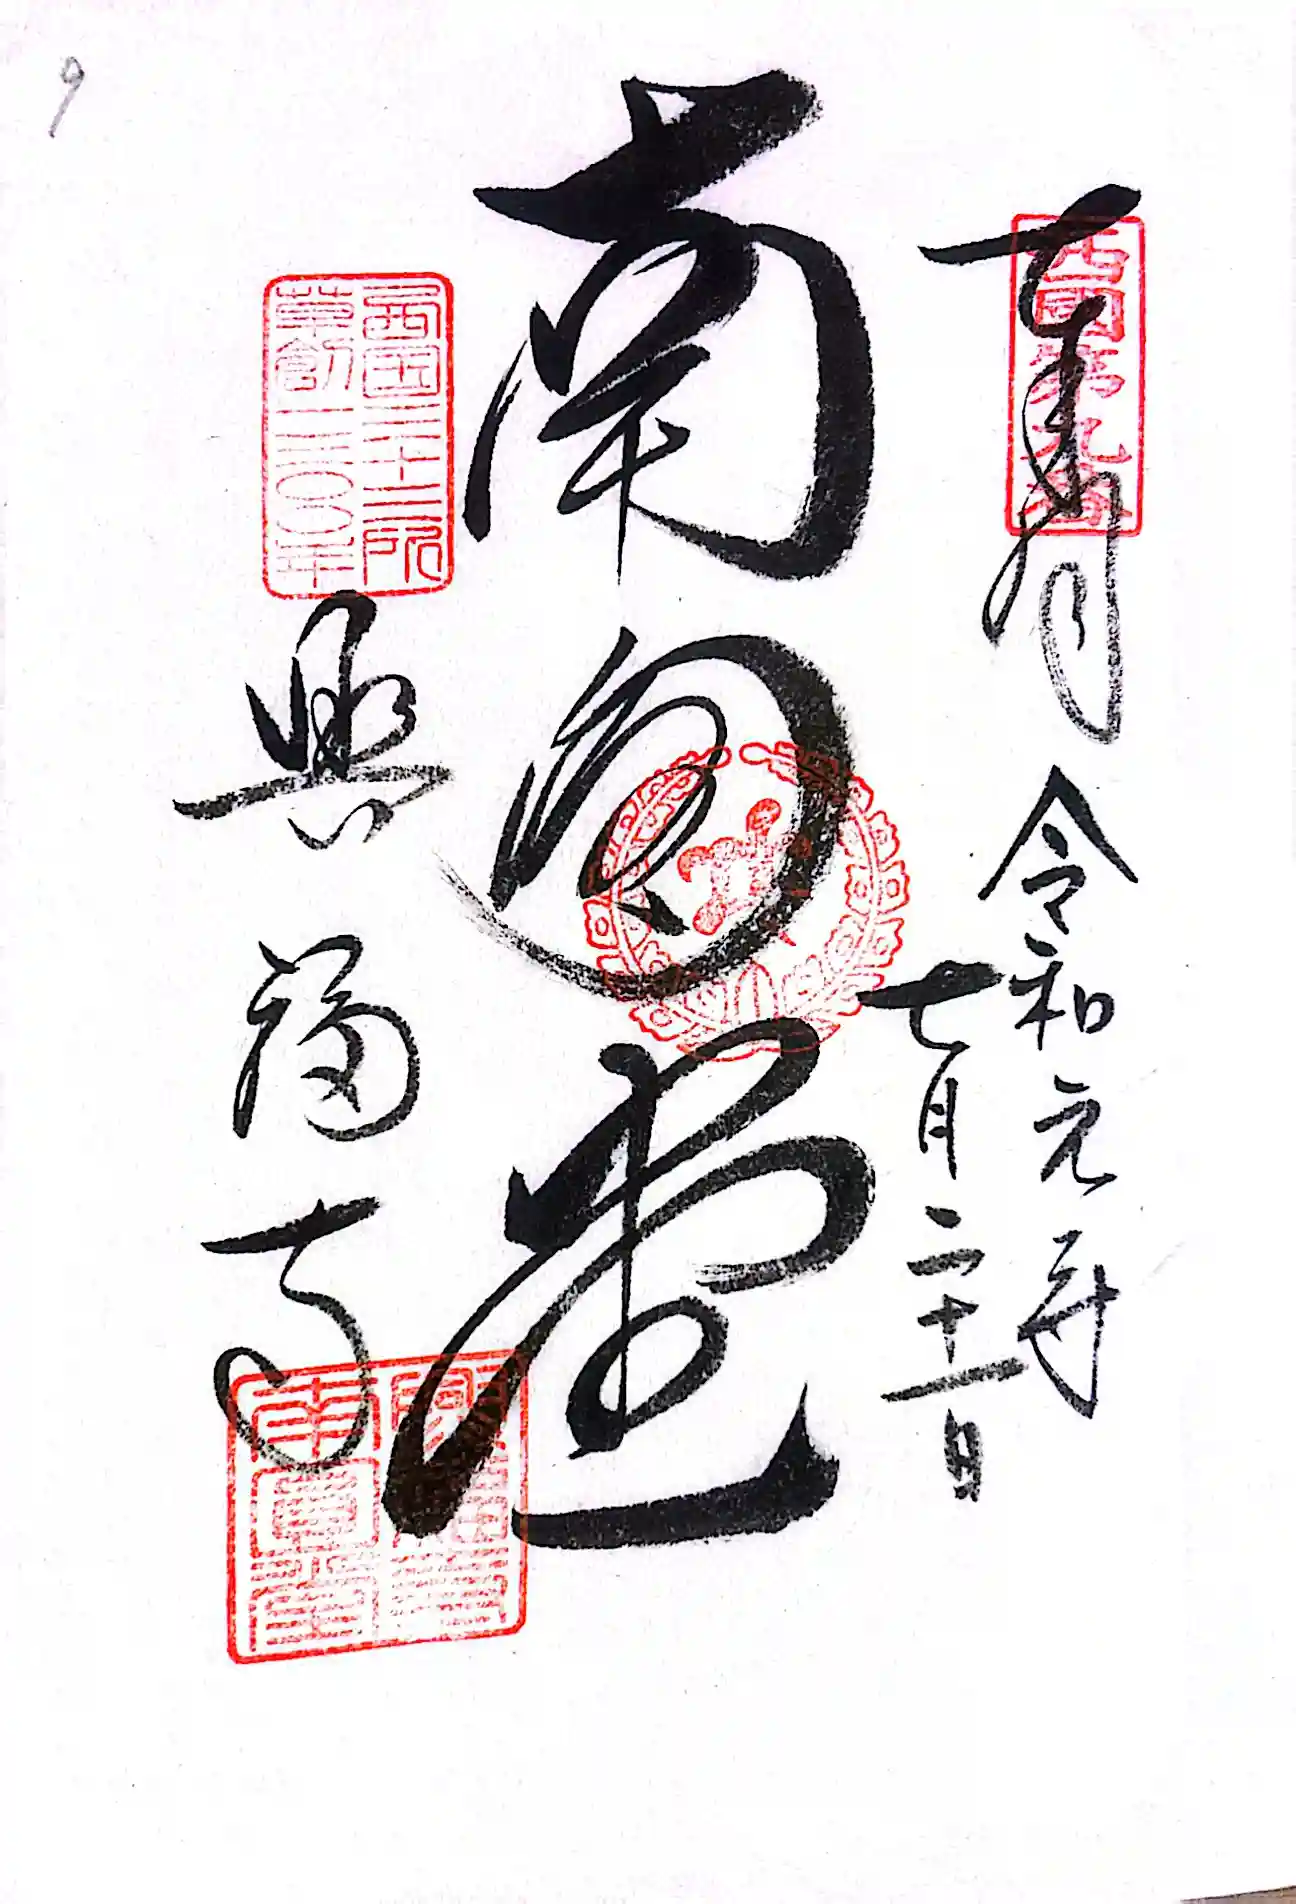 奉拝
西國第九番
令和元年
七月二十一日
南円堂
西国三十三所
草創一三〇〇年
興福寺
9